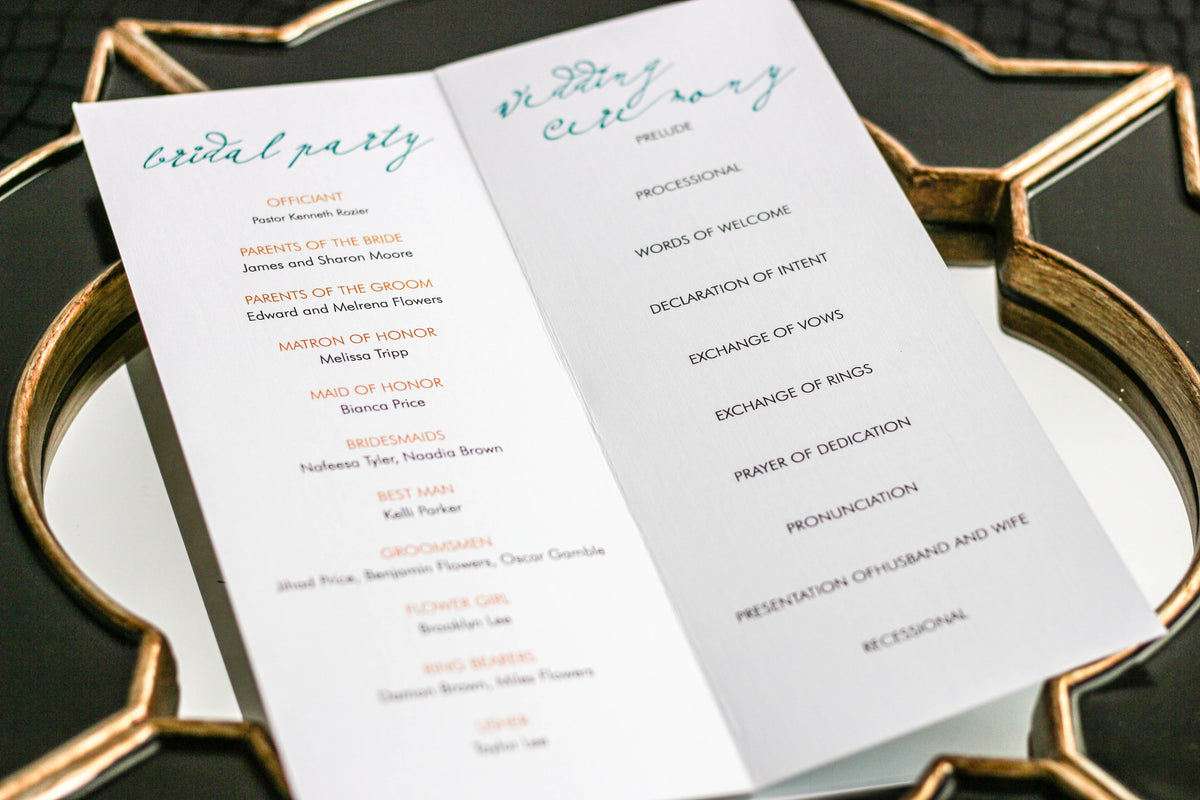 bridal party
OFFICIANT
Pastor Kenneth Rozier
PARENTS OF THE BRIDE
James and Sharon Moore
PARENTS OF THE GROOM
Edward and Melrena Flowers
MATRON OF HONOR
Melissa Tripp
MAID OF HONOR
Bianca Price
BRIDESMAIDS
Nafeesa Tyler, Naadia Brown
BEST MAN
Kelli Parker
GROOMSMEN
Jihad Price, Benjamin Flowers, Oscar Gamble
FLOWER GIRL
Brooklyn Lee
RING BEARERS
Damon Brown, Miles Flowers
USHER
Taylor Lee
wedding
ceremony
PRELUDE
PROCESSIONAL
WORDS OF WELCOME
DECLARATION OF INTENT
EXCHANGE OF VOWS
EXCHANGE OF RINGS
PRAYER OF DEDICATION
PRONUNCIATION
PRESENTATION OFHUSBAND AND WIFE
RECESSIONAL